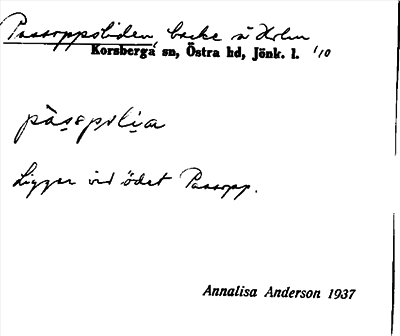 Passoppsliden, backe å Holm
Korsberga sn, Östra hd, Jönk. l. 1/10
Ligger vid ödet Passopp.
Annalisa Anderson 1937